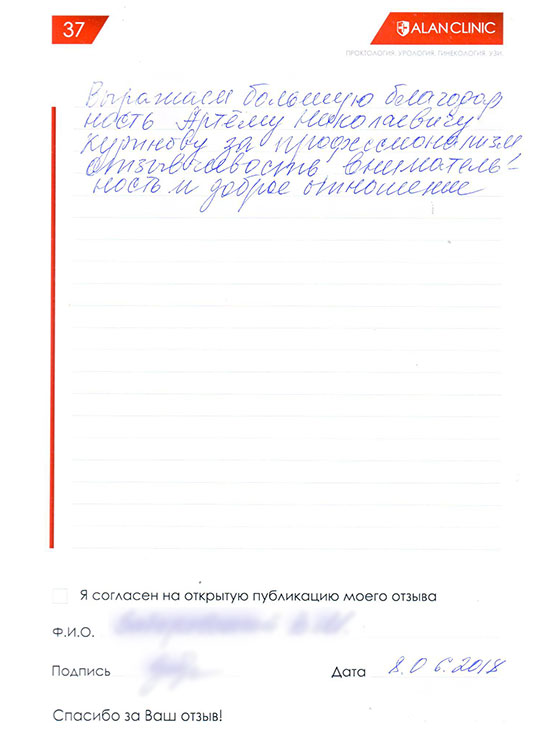 37
ALAN CLINIC
ПРОКТОЛОГИЯ, УРОЛОГИЯ, ГИНЕКОЛОГИЯ, УЗИ
Выражаем большую благодар
ность Артёму Николаевичу
Куринову за профессионализм
отзывчевость, вниматель-
ность и доброе отношение
Я согласен на открытую публикацию моего отзыва
Ф.И.О.
Подпись
Дата 8.06.2018
Спасибо за Ваш отзыв!